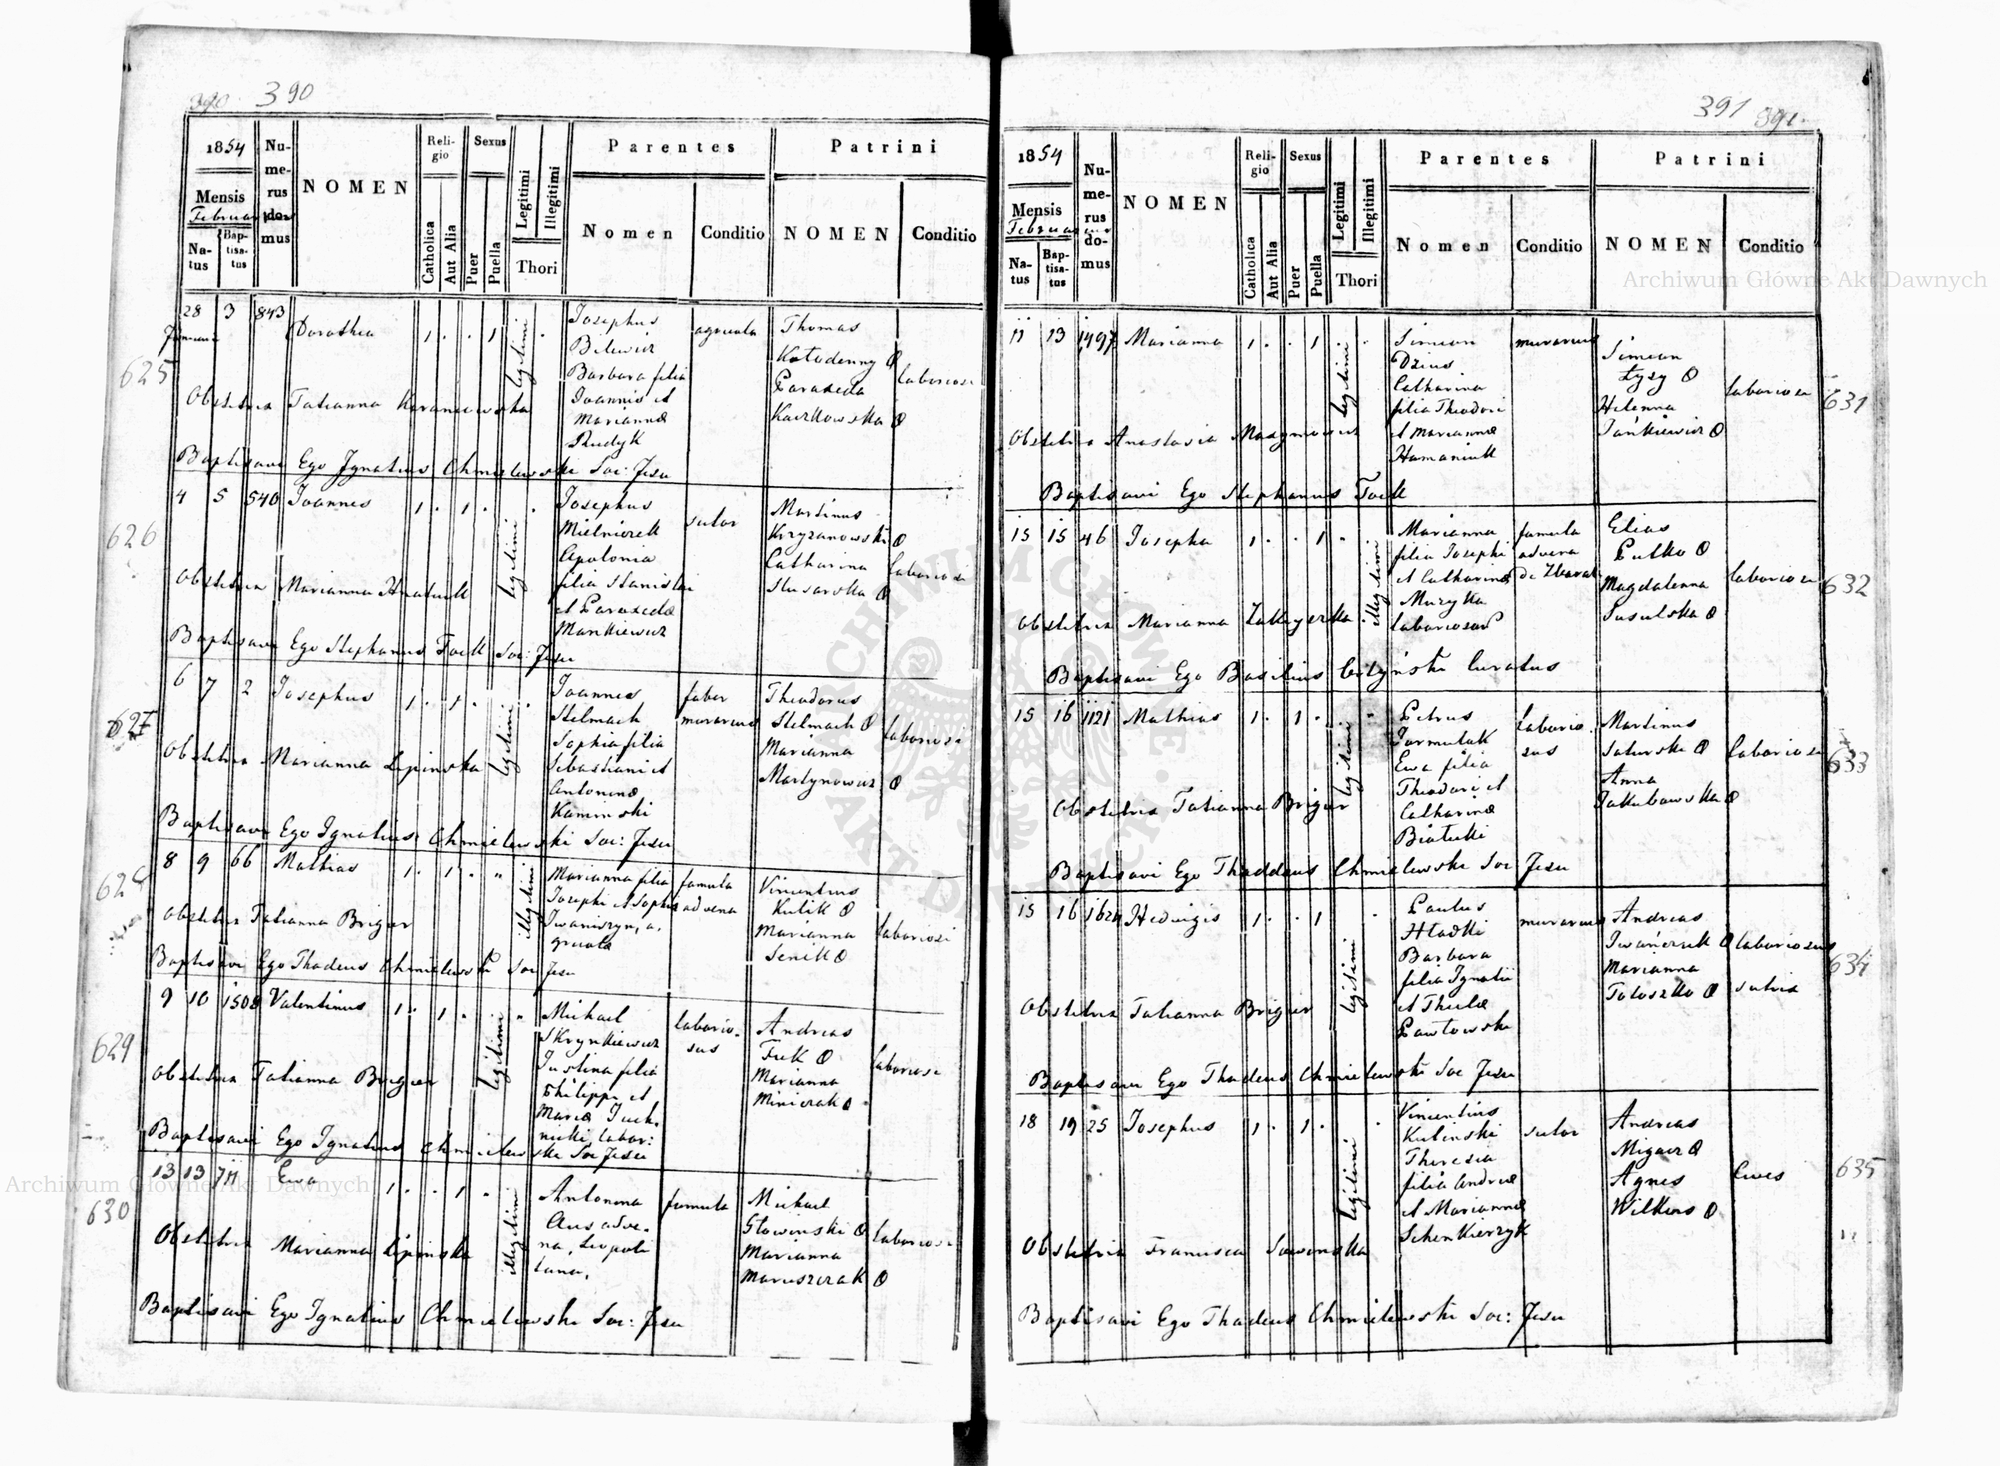 390 390
1854
Mensis
Februar
Natus
Baptisatus
Numerus domus
NOMEN
Religio
Catholica
Aut Alia
Sexus
Puer
Puella
Legitimi
Illegitimi
Thori
Parentes
Nomen
Conditio
Patrini
NOMEN
Conditio
625
28 3 843 Dorothea 1 . . 1 legitimi .
Januari
Josephus
Bilewicz
Barbara filia
Joannis et
Mariannæ
Rudyk
agricola
Thomas
Kołodenny
Paraxeda
Kaczkowska
laboriosi
Obstetrix Tatianna Karaniewska
Baptisavi Ego Ignatius Chmielewski Soc: Jesu
626
4 5 540 Joannes 1 . 1 . legitimi .
Josephus
Mielniczek
Apolonia
filia Stanislai
et Paraxedæ
Mankiewicz
sutor
Martinus
Kryzanowski
Catharina
Slusarska
laboriosi
Obstetrix Marianna Hnatiuk
Baptisavi Ego Stephanus Foelk Soc: Jesu
627
6 7 2 Josephus 1 . 1 . legitimi .
Joannes
Stelmach
Sophia filia
Sebastiani et
Antoninæ
Kaminski
faber
murarius
Theodorus
Stelmach
Marianna
Martynowicz
laboriosi
Obstetrix Marianna Lipinska
Baptisavi Ego Ignatius Chmielewski Soc: Jesu
628
8 9 66 Mathias 1 . 1 . illegitimi
Marianna filia
Josephi et Sophiæ
Iwaniszyn, a,
gricola
famula
advena
Vincentius
Kulik
Marianna
Senik
laboriosi
Obstetrix Tatianna Brigier
Baptisavi Ego Thadeus Chmielewski Soc Jesu
629
9 10 1508 Valentinus 1 . 1 . legitimi
Michael
Skrynkiewicz
Justina filia
Philippi et
Mariæ Juch,
nicki labor:
laborio,
sus
Andreas
Fuk
Marianna
Miniczak
laboriosi
Obstetrix Tatianna Brigier
Baptisavi Ego Ignatius Chmielewski Soc Jesu
630
13 13 711 Ewa 1 . . 1 . illegitimi
Antonina
Aus adve,
na, Leopoli
tana,
famula
Michael
Głowinski
Marianna
Maruszczak
laboriosi
Obstetrix Marianna Lipinska
Baptisavi Ego Ignatius Chmielewski Soc: Jesu
391 391
1854
Mensis
Februar
Natus
Baptisatus
Numerus domus
NOMEN
Religio
Catholica
Aut Alia
Sexus
Puer
Puella
Legitimi
Illegitimi
Thori
Parentes
Nomen
Conditio
Patrini
NOMEN
Conditio
631
11 13 1497 Marianna 1 . . 1 legitimi .
Simeon
Dzius
Catharina
filia Theodori
et Mariannæ
Humaniuk
murarius
Simeon
Łysy
Helenna
Jankiewicz
laboriosi
Obstetrix Anastasia Maxymowicz
Baptisavi Ego Stephanus Foelk
632
15 15 46 Josepha 1 . . 1 . illegitimi
Marianna
filia Josephi
et Catharinæ
Muzyka
laboriosorum
famula
advena
de Zbaraż
Elias
Pulko
Magdalenna
Susulska
laboriosi
Obstetrix Marianna
Baptisavi Ego Basilius Curatus
633
15 16 1121 Mathias 1 . 1 . legitimi
Petrus
Jarmulak
Ewa filia
Theodori et
Catharinæ
Białecki
laborio,
sus
Martinus
Saturski
Anna
Jakubowska
laboriosi
Obstetrix Tatianna Brigier
Baptisavi Ego Thaddeus Chmielewski Soc Jesu
634
15 16 1624 Hedvigis 1 . . 1 legitimi
Paulus
Hładki
Barbara
filia Ignatii
et Theclæ
Pawłowski
murarius
Andreas
Iwańczuk
Marianna
Tołoszko
laboriosus
sutrix
Obstetrix Tatianna Brigier
Baptisavi Ego Thadeus Chmielewski Soc Jesu
635
18 19 25 Josephus 1 . 1 . legitimi .
Vincentius
Kulinski
Theresia
filia Andreæ
et Mariannæ
Schenkierzyk
sutor
Andreas
Migacz
Agnes
Wilkus
Cives
Obstetrix Francisca Sowinska
Baptisavi Ego Thadeus Chmielewski Soc: Jesu
Archiwum Główne Akt Dawnych
ARCHIWUM GŁÓWNE · AKT DAWNYCH ·
Archiwum Główne Akt Dawnych